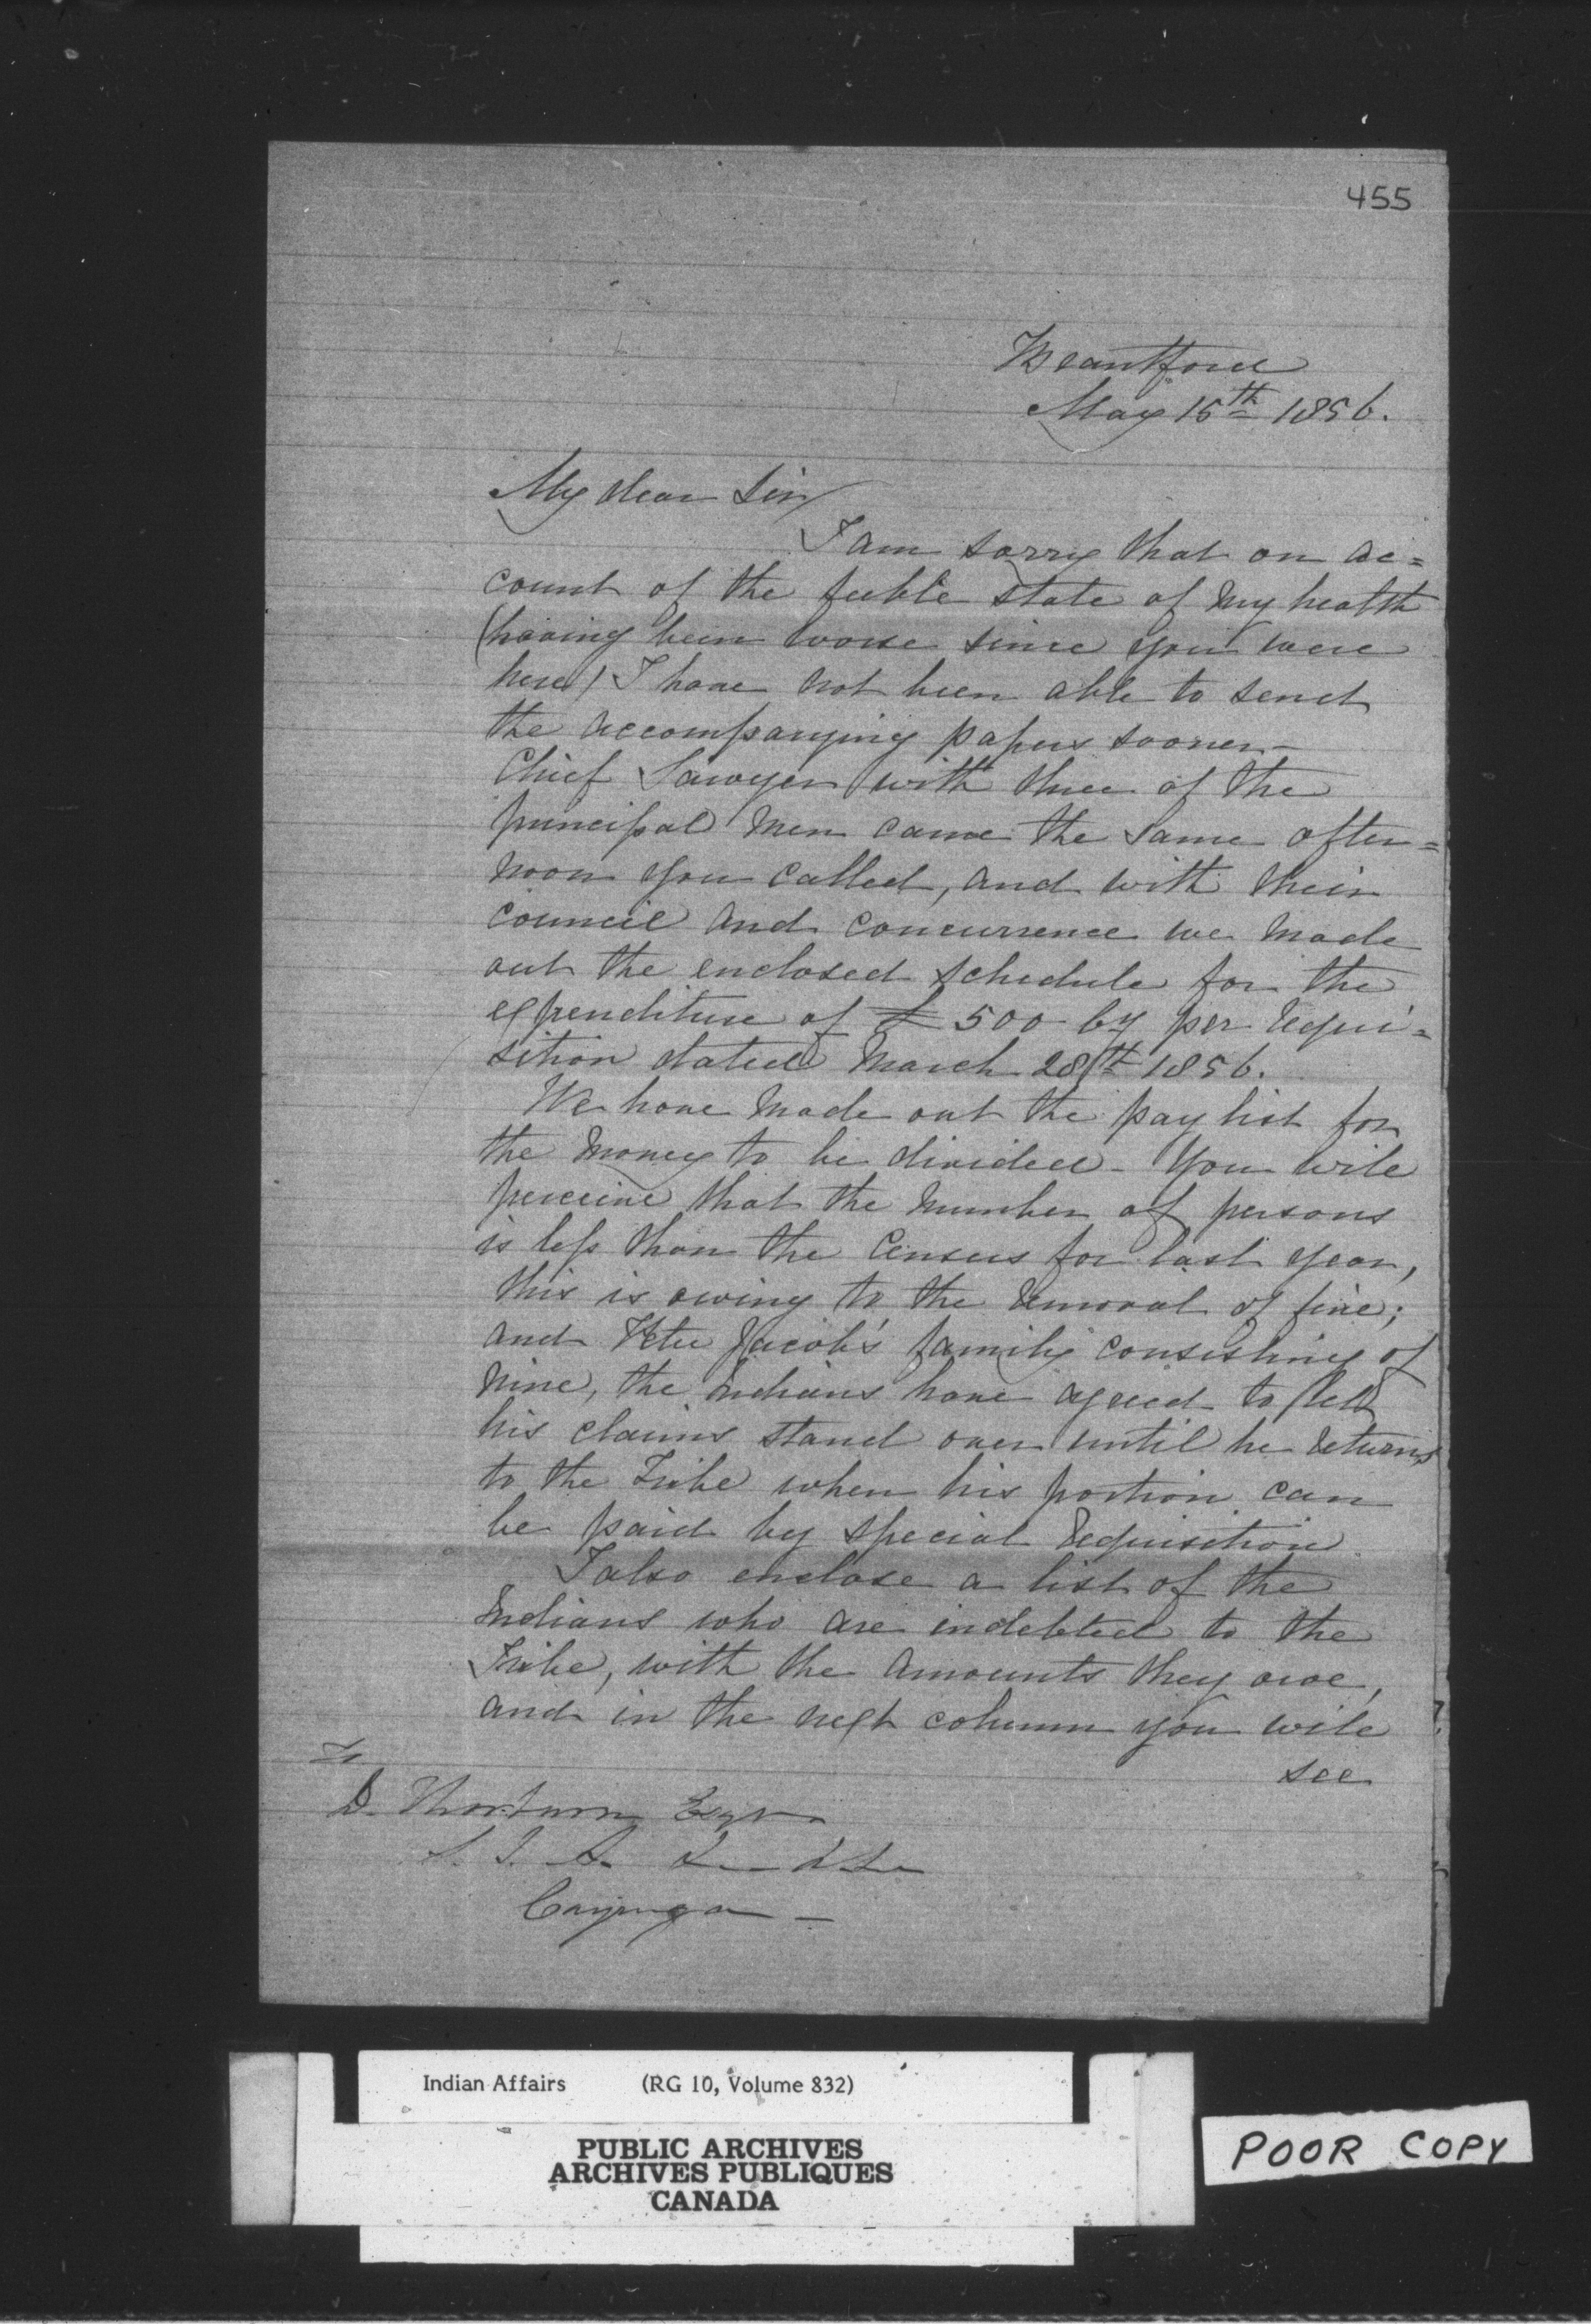 455
Brantford
May 15th 1856.
My dear Sir
I am sorry that on ac=
count of the feeble state of my health
(having been worse since you were
here) I have not been able to send
the accompanying papers sooner -
Chief Sawyer with three of the
principal men came the same after=
noon you called, and with their
council and concurrence we made
out the enclosed schedule for the
expenditure of £500 by per requi=
sition dated March 28th 1856.
We have made out the pay list for
the money to be divided - You will
perceive that the number of persons
is less than the Census for last year,
this is owing to the removal of five;
and Peter Jacob's family consisting of
nine, the Indians have agreed to let
his claims stand over until he returns
to the Tribe when his portion can
be paid by special requisition.
I also enclose a list of the
Indians who are indebted to the
Tribe, with the amounts they owe,
and in the next column you will
see
To
D. Thorburn Esqr
S. I. A.
Cayuga -
Indian Affairs (RG 10, Volume 832)
PUBLIC ARCHIVES
ARCHIVES PUBLIQUES
CANADA
POOR COPY